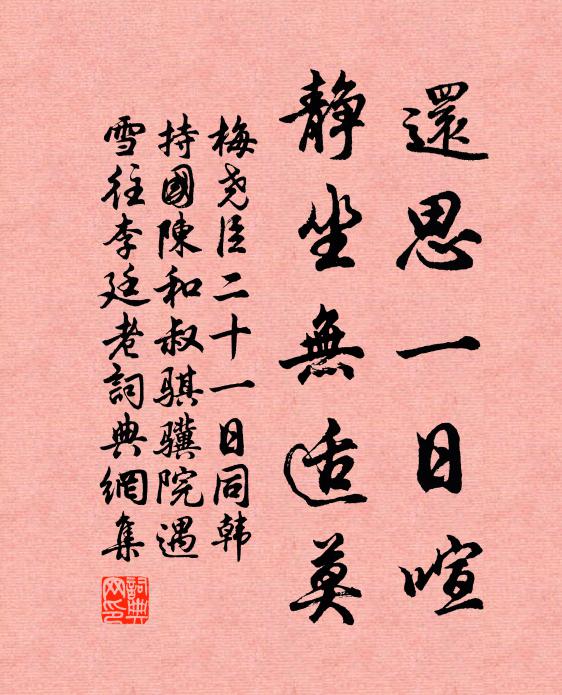 還思一日喧
静坐無适莫
梅尧臣二十一日同韩
持國陳和叔骐骥院遇
雪往李廷老詞典網集
詞典网印